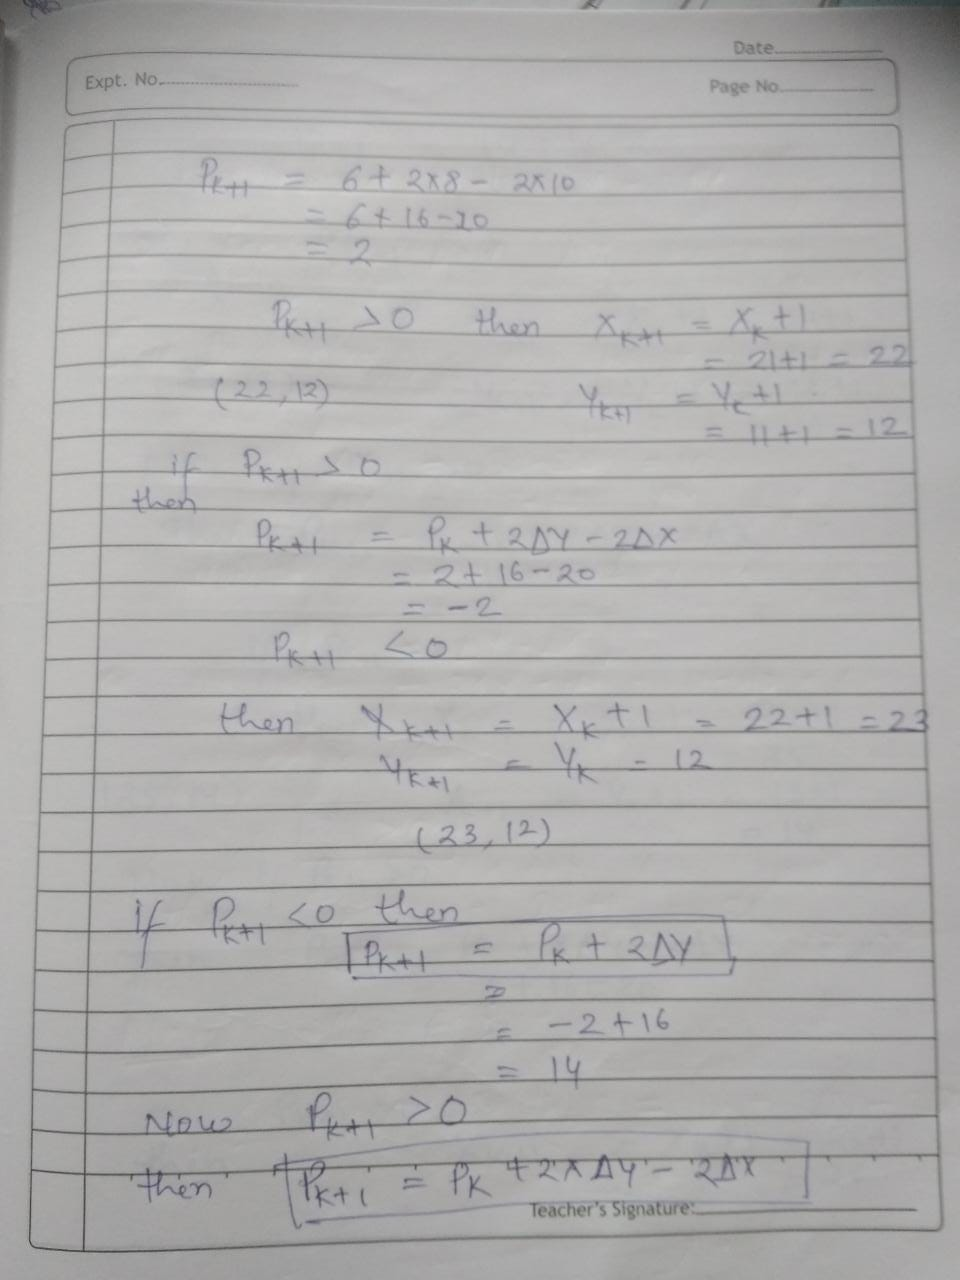 Date
Expt. No.
Page No.
P_{K+1} = 6 + 2×8 - 2×10
= 6 + 16 - 20
= 2
P_{K+1} > 0 then X_{K+1} = X_K + 1
= 21+1 = 22
(22, 12) Y_{K+1} = Y_K + 1
= 11+1 = 12
if P_{K+1} > 0
then
P_{K+1} = P_K + 2ΔY - 2ΔX
= 2 + 16 - 20
= -2
P_{K+1} < 0
then X_{K+1} = X_K + 1 = 22+1 = 23
Y_{K+1} = Y_K = 12
(23, 12)
If P_{K+1} < 0 then
P_{K+1} = P_K + 2ΔY
=
= -2 + 16
= 14
Now P_{K+1} > 0
then P_{K+1} = P_K + 2×ΔY - 2ΔX
Teacher's Signature: